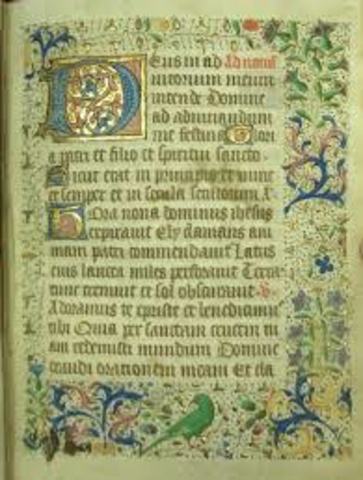 Deus in ad Ad nonam
iutorium meum
intende Domine
ad adiuuandum
me festina Glori
a patri et filio et spiritui sancto.
Sicut erat in principio et nunc
et semper et in secula seculorum A
Hora nona dominus ihesus
expirauit Ely clamans ani
mam patri commendauit Latus
eius lancea miles perforauit Terra
tunc tremuit et sol obscurauit. V
Adoramus te christe et benedicimus
tibi Quia per sanctam crucem tu
am redemisti mundum Domine
exaudi orationem meam Et cla